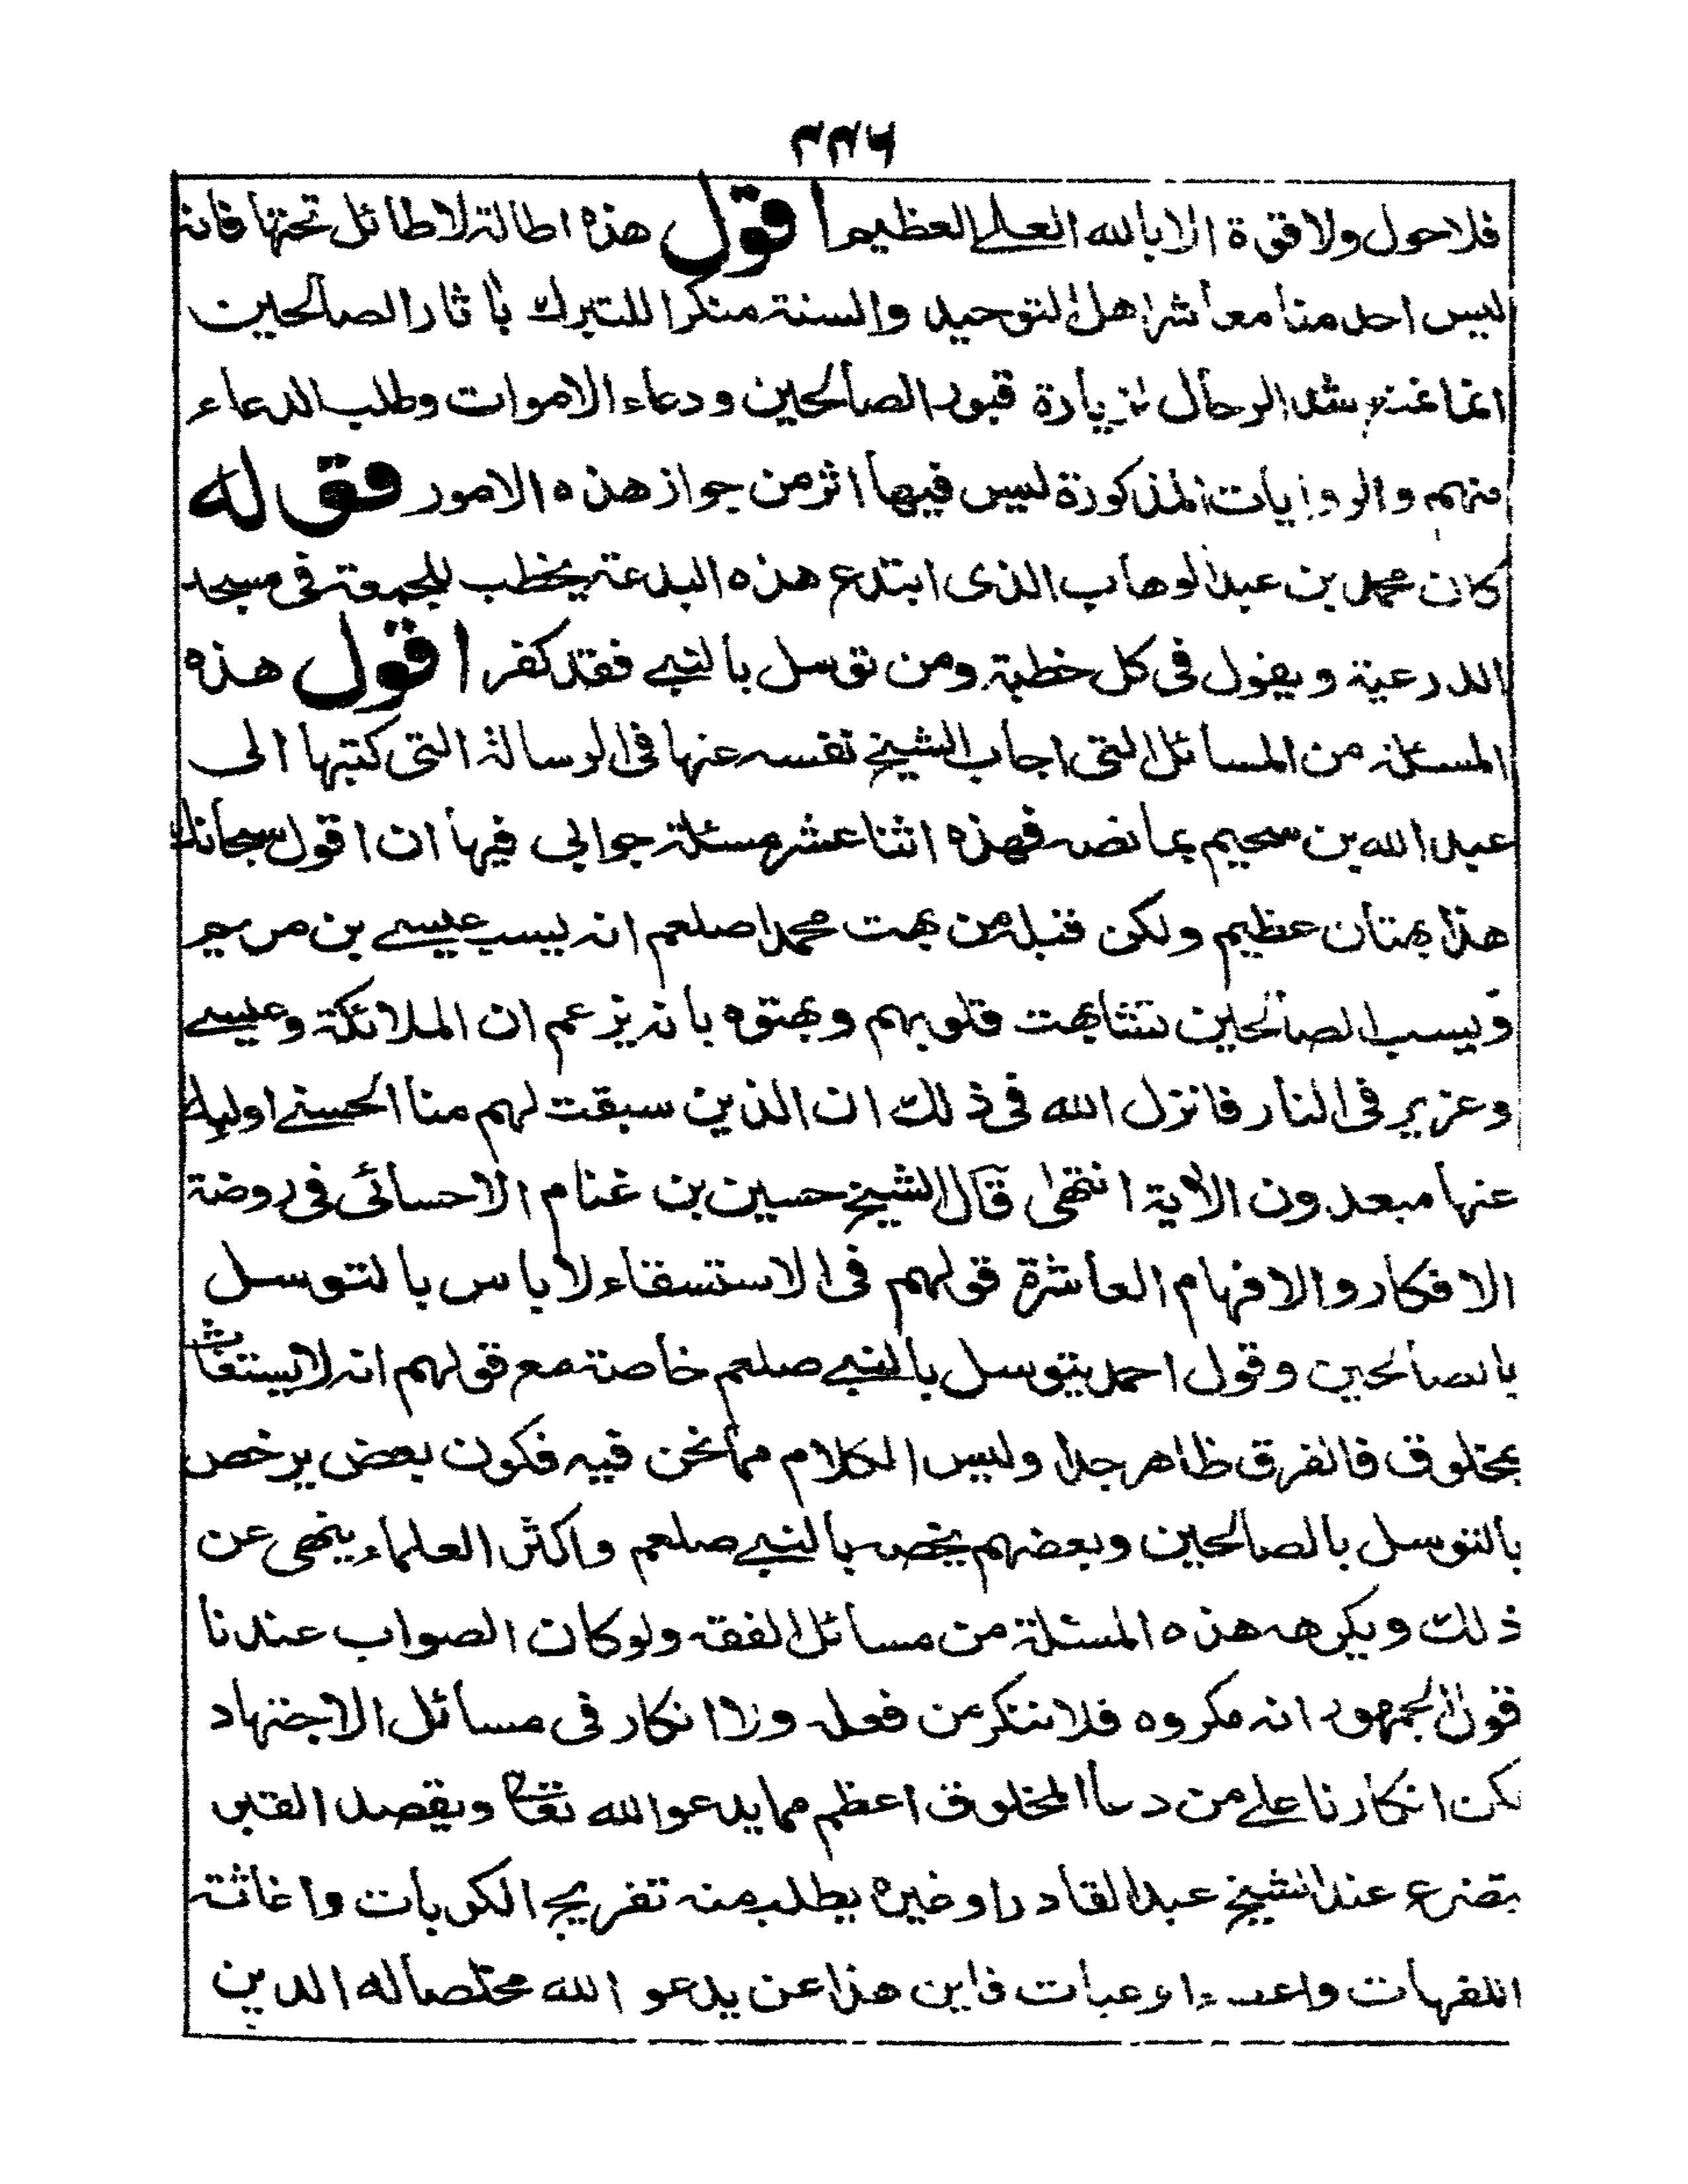 ٢٢٦
فلاحول ولاقوة الابالله العلے العظیم اقول هذه اطالة لاطائل تحتها فانه
ليس احد منا معاشر اهل التوحيد والسنة منكرا للتبرك باثار الصالحين
انما شد الرحال لزيارة قبور الصالحين ودعاء الاموات وطلب الدعاء
منهم والروايات المذكورة ليس فيها اثر من جواز هذه الامور قوله
كان محمد بن عبد الوهاب الذى ابتدع هذه البدعة يخطب للجمعة فى مسجد
الدرعية ويقول فى كل خطبة ومن توسل بالنبے فقد كفر اقول هذه
المسئلة من المسائل التى اجاب الشيخ نفسه عنها فى الرسالة التى كتبها الى
عبد الله بن سحيم بما نصه فهذه اثنا عشر مسئلة جوابى فيها ان اقول سبحانك
هذا بهتان عظيم ولكن قبله من بهت محمدا صلعم انه يسب عيسے بن مريم
ويسب الصالحين تشابهت قلوبهم وبهتوه بانه يزعم ان الملائكة وعيسے
وعزير فى النار فانزل الله فى ذلك ان الذين سبقت لهم منا الحسنے اوليك
عنها مبعدون الاية انتهى قال الشيخ حسين بن غنام الاحسائى فى روضة
الافكار والافهام العاشرة قولهم فى الاستسقاء لاباس بالتوسل
بالصالحين وقول احمد يتوسل بالنبے صلعم خاصة مع قولهم انه لايستغاث
بمخلوق فالفرق ظاهر جدا وليس الكلام مما نحن فيه فكون بعض يرخص
بالتوسل بالصالحين وبعضهم يخص بالنبے صلعم واكثر العلماء ينهى عن
ذلك ويكرهه هذه المسئلة من مسائل الفقه ولوكان الصواب عندنا
قول الجمهور انه مكروه فلاننكر من فعله ولا انكار فى مسائل الاجتهاد
لكن انكارنا علے من دعا المخلوق اعظم مما يدعو الله تعا ويقصد القبر
يتضرع عند الشيخ عبد القادر او غيره يطلب منه تفريج الكربات واغاثة
اللفهات الرغبات فاين هذا عن يدعو الله مخلصا له الدين